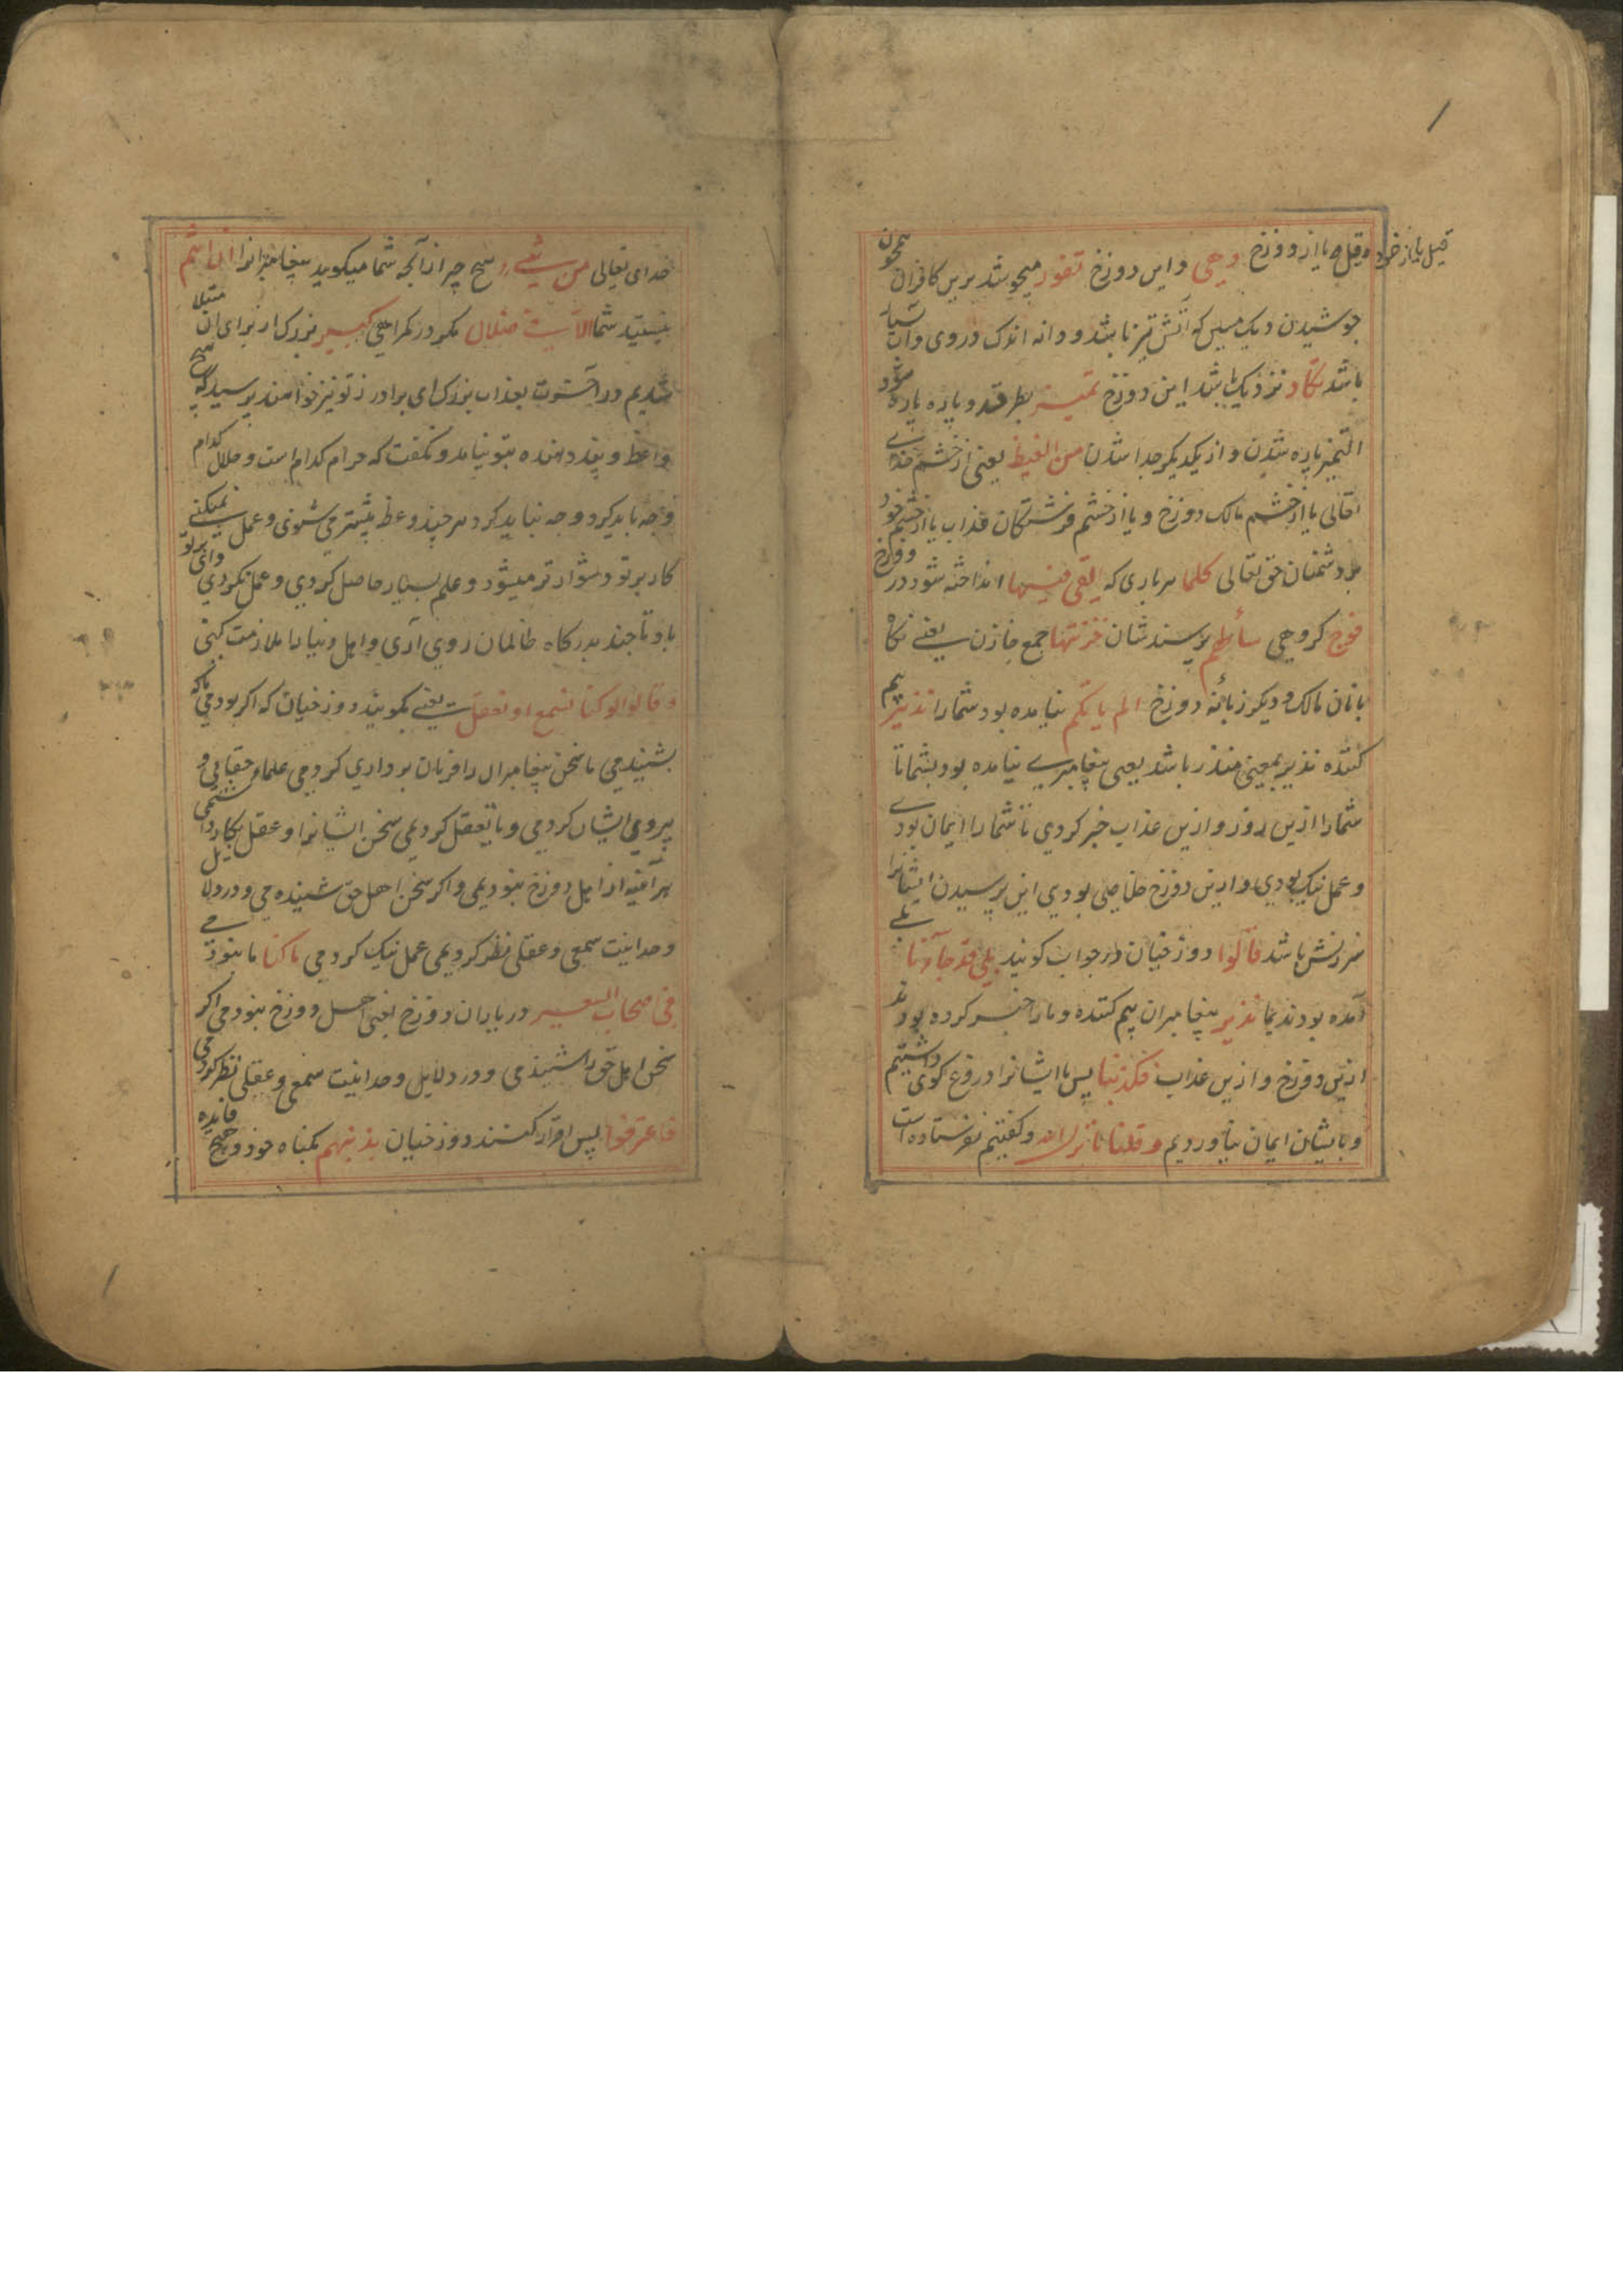 قیل یا از خود
وقیل یا از دوزخ وهی و این دوزخ تفور میجوشد برین کافران همچون
جوشیدن دیک مسین که آتش تیز باشد و دانه اندک در وی و آب بسیار
باشد تکاد نزدیک باشد این دوزخ تمیز بطرقد و پاره پاره شود
التمیز پاره شدن و از یکدیکر جدا شدن من الغیظ یعنی از خشم خدای
تعالی یا از خشم مالک دوزخ و یا از خشم فرشتکان عذاب یا از خشم خود
بر دشمنان حق تعالی کلما هر باری که القی فیها انداخته شود در دوزخ
فوج کروهی سألهم پرسند شان خزنتها جمع خازن یعنی نکاه
بانان مالک و دیکر زبانیه دوزخ الم یاتکم نیامده بود شمارا نذیر بیم
کننده نذیر بمعنی منذر باشد یعنی پیغامبری نیامده بود بشما تا
شمارا ازین روز و ازین عذاب خبر کردی تا شمارا ایمان بودی
و عمل نیک بودی و ازین دوزخ خلاصی بودی این پرسیدن ایشانرا
سرزنش باشد قالوا دوزخیان در جواب کویند بلی قد جآءنا بلی
آمده بودند بما نذیر پیغامبران بیم کننده و مارا خبر کرده بودند
ازین دوزخ و ازین عذاب فکذبنا پس ما ایشانرا دروغ کوی داشتیم
و بایشان ایمان نیاوردیم و قلنا ما نزل الله و کفتیم نفرستاده است
خدای تعالی من شیء هیچ چیز از آنچه شما میکویید پیغامبرانرا ان انتم
نیستید شما الا فی ضلال مکر در کمراهی کبیر بزرک از برای آن مبتلا
شدیم در آخرت بعذاب بزرک ای برادر از تو نیز خواهند پرسید که هیچ
واعظ و پند دهنده بتو نیامد و نکفت که حرام کدام است و حلال کدام
و چه باید کرد و چه نباید کرد هر چند وعظ بیشتر می شنوی و عمل نمیکنی
کار بر تو دشوار تر میشود و علم بسیار حاصل کردی و عمل نکردی وای بر تو
باد تا چند بدرکاه ظالمان روی آری و اهل دنیا را ملازمت کنی
و قالوا لو کنا نسمع او نعقل یعنی بکویند دوزخیان که اکر بودمی ما که
بشنیدمی ما سخن پیغامبران را فرمان برداری کردمی علماء حقانی و
پیروی ایشان کردمی و یا تعقل کردیمی سخن ایشانرا و عقل بکار داشتمی
هر آینه از اهل دوزخ نبودیمی و اکر سخن اهل حق شنیده می و در دلایل
وحدانیت سمعی و عقلی نظر کردیمی عمل نیک کردمی ما کنا ما نبودمی
فی اصحاب السعیر در یاران دوزخ یعنی اهل دوزخ نبودمی اکر
سخن اهل حق را شنیدمی و در دلایل وحدانیت سمعی و عقلی نظر کردمی
فاعترفوا پس اقرار کنند دوزخیان بذنبهم بکناه خود و هیچ فایده